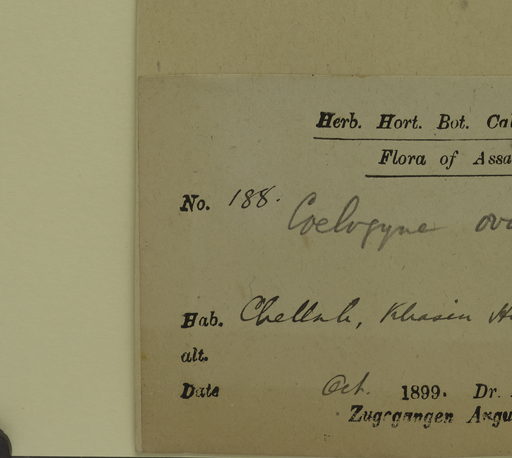 Herb. Hort. Bot. Cal
Flora of Assa
No. 188.
Coelogyne ova
Hab. Chellah, Khasia Hi
alt.
Date Oct. 1899. Dr.
Zugegangen Augu